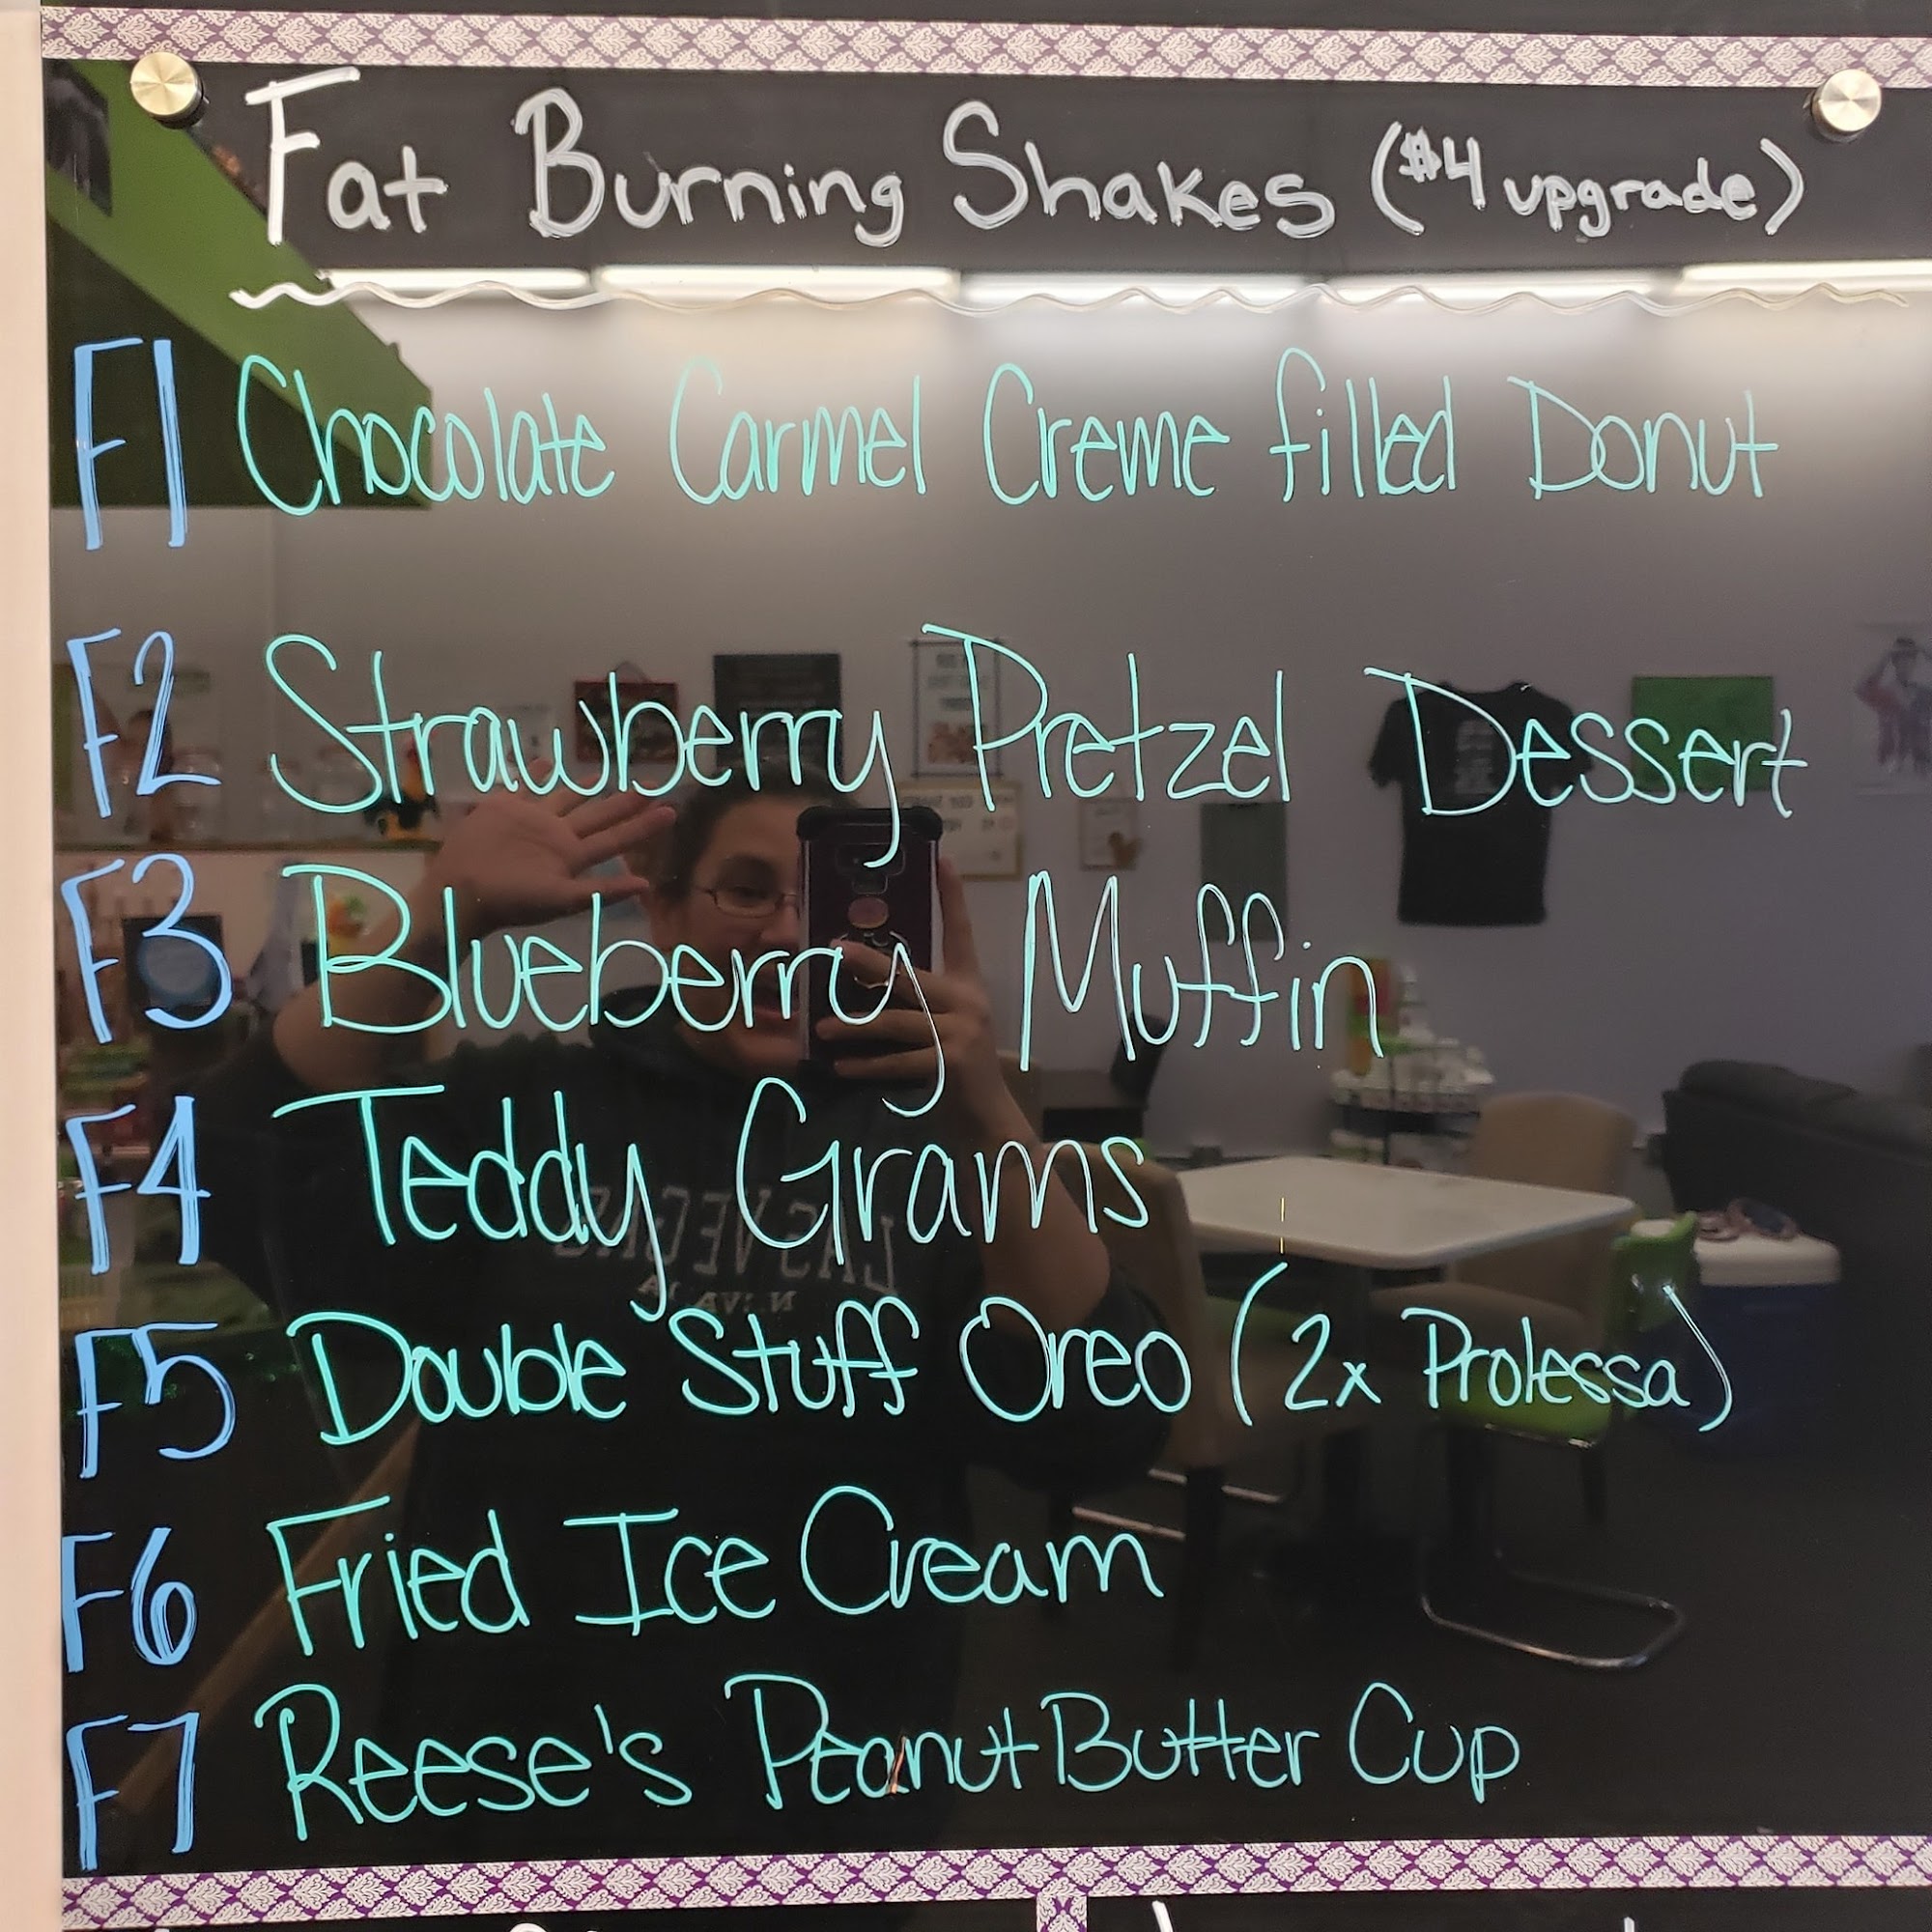 Fat Burning Shakes ($4 upgrade)
F1 Chocolate Carmel Creme filled Donut
F2 Strawberry Pretzel Dessert
F3 Blueberry Muffin
F4 Teddy Grams
LAS VEGAS
F5 Double Stuff Oreo (2x Prolessa)
F6 Fried Ice Cream
F7 Reese's Peanut Butter Cup